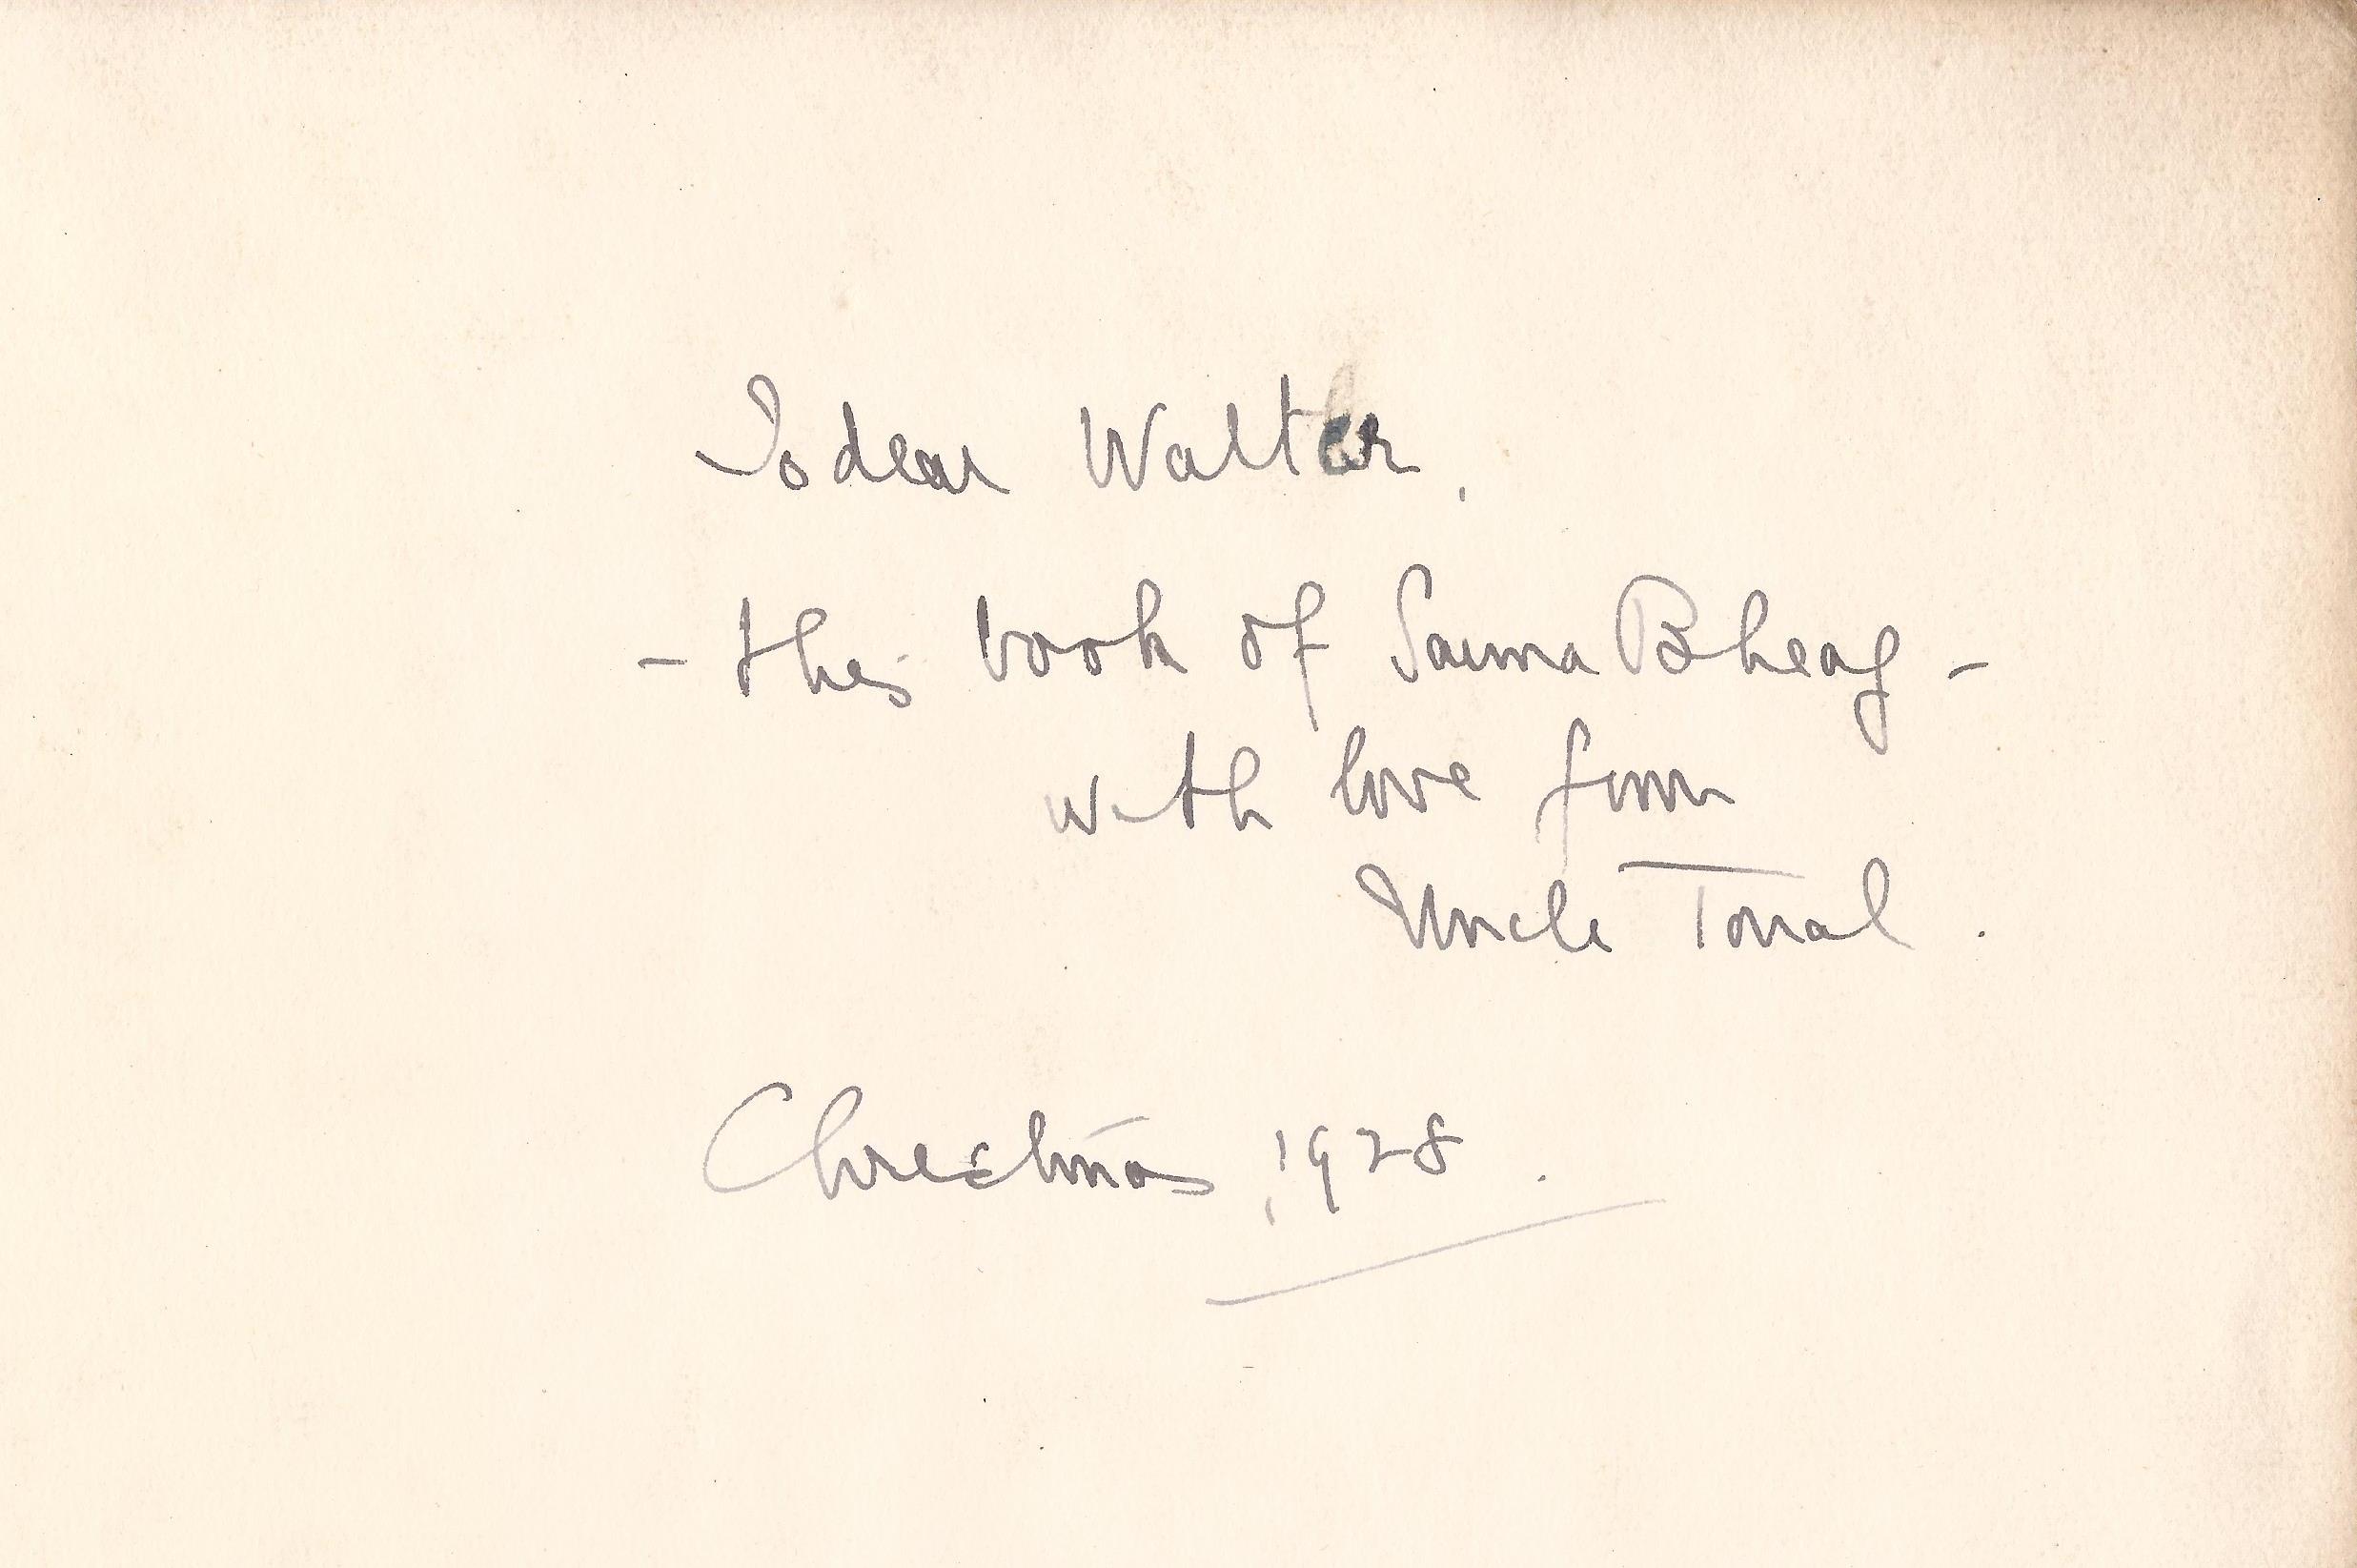 To dear Walter,
- this book of Sauma Bheag -
with love from
Uncle Torral.
Christmas, 1928.